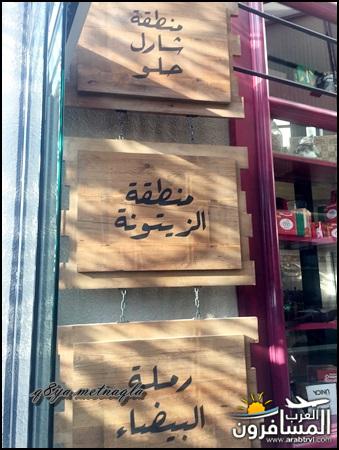 منطقة
شارل
حلو
منطقة
الزيتونة
رملة
البيضاء
g8ya metnagla
العرب
المسافرون
www.arabtrvl.com